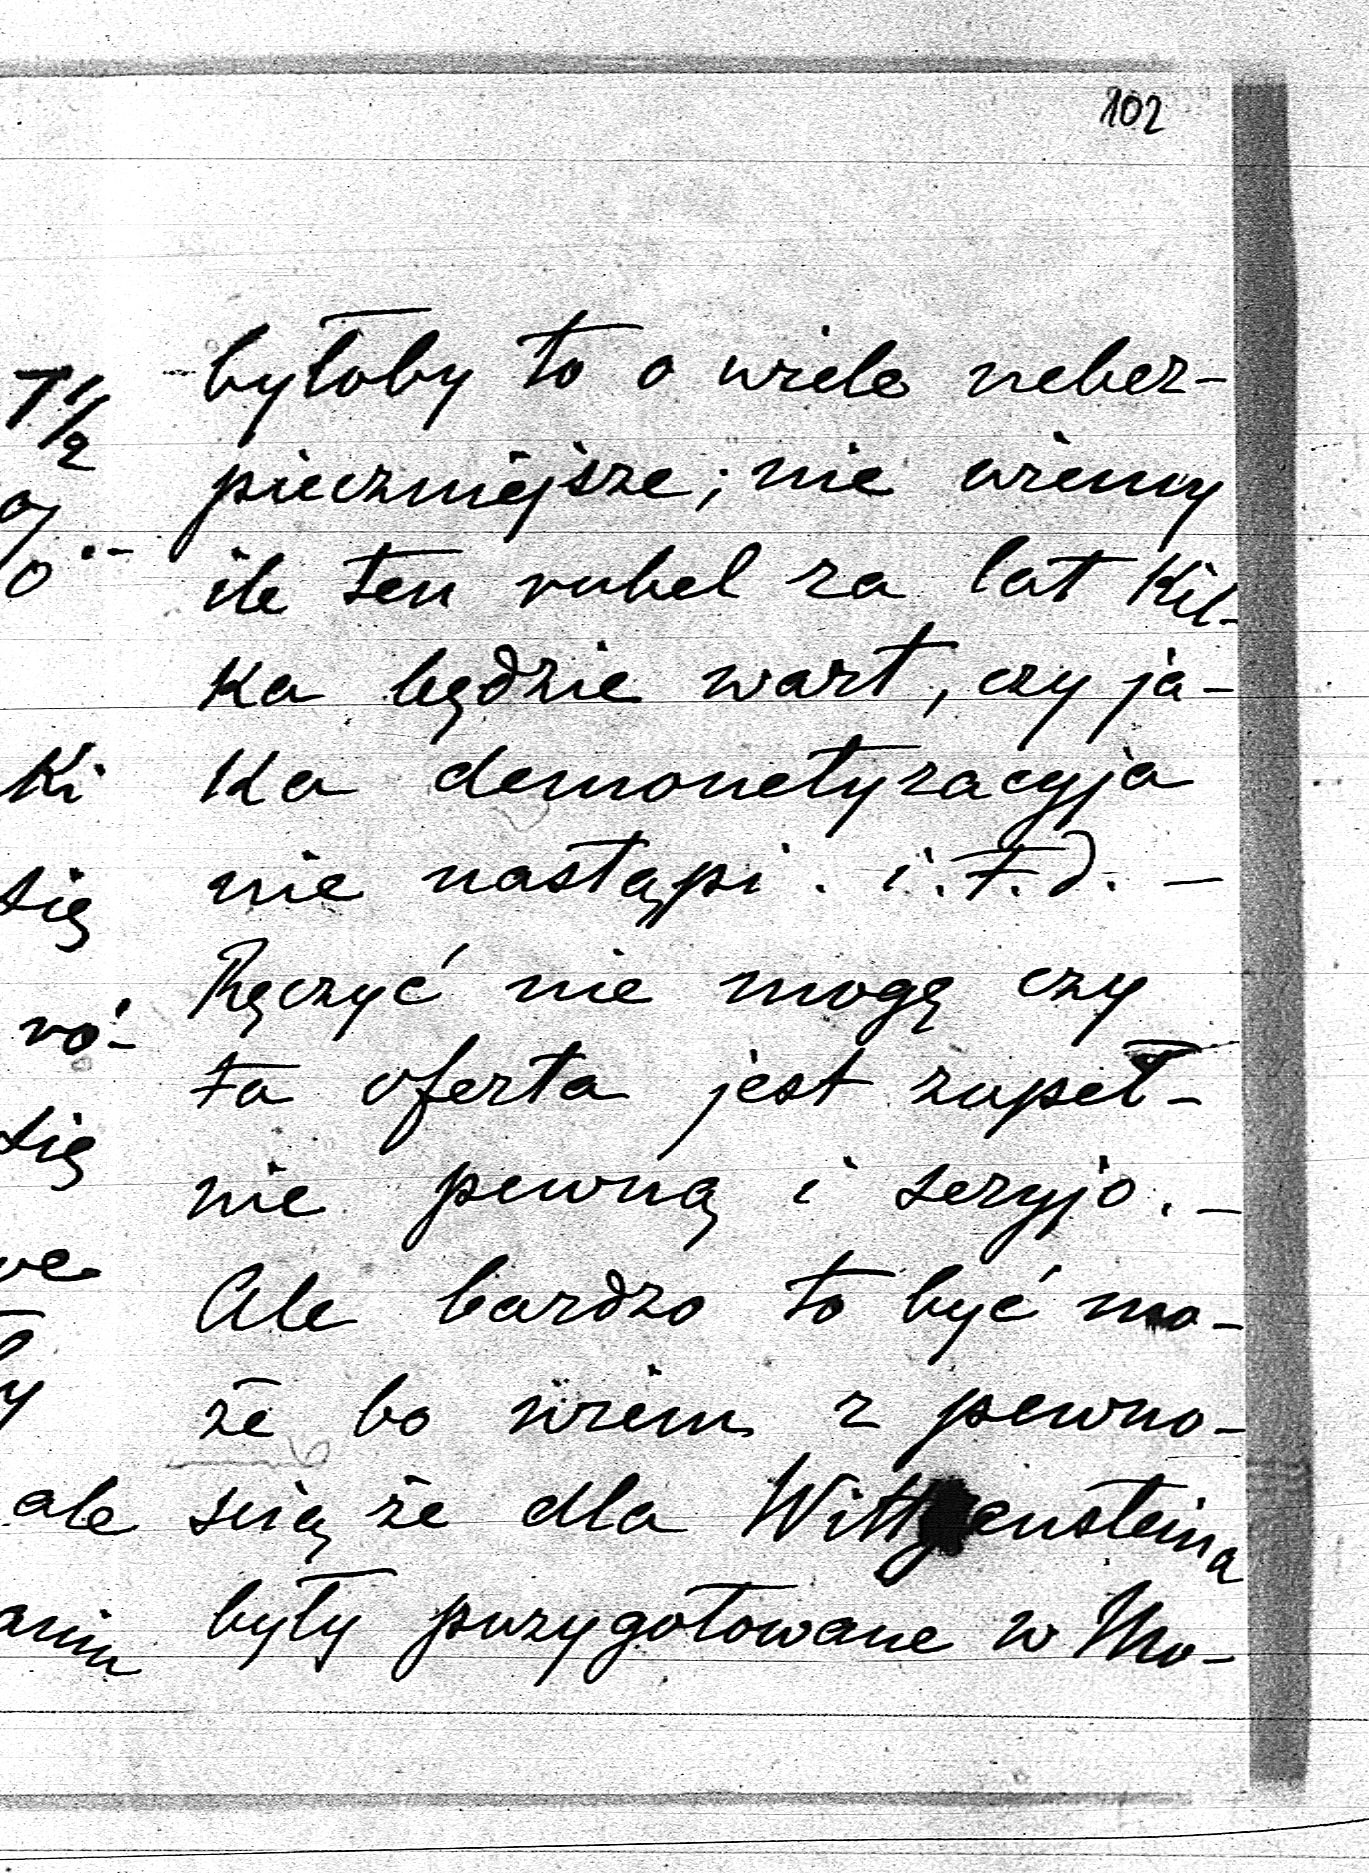 102
byłoby to o wiele nebez-
pieczniejsze; nie wiemy
ile ten rubel za lat kil-
ka będzie wart, czy ja-
ka demonetyzacyja
nie nastąpi. i.t.d. —
Ręczyć nie mogę czy
ta oferta jest zupeł-
nie pewną i seryjo. —
Ale bardzo to być mo-
że bo wiem z pewno-
scią że dla Wittgensteina
były przygotowane w Mo-
7 1/2
%..-
ki
się
ró-
się
ve
ale